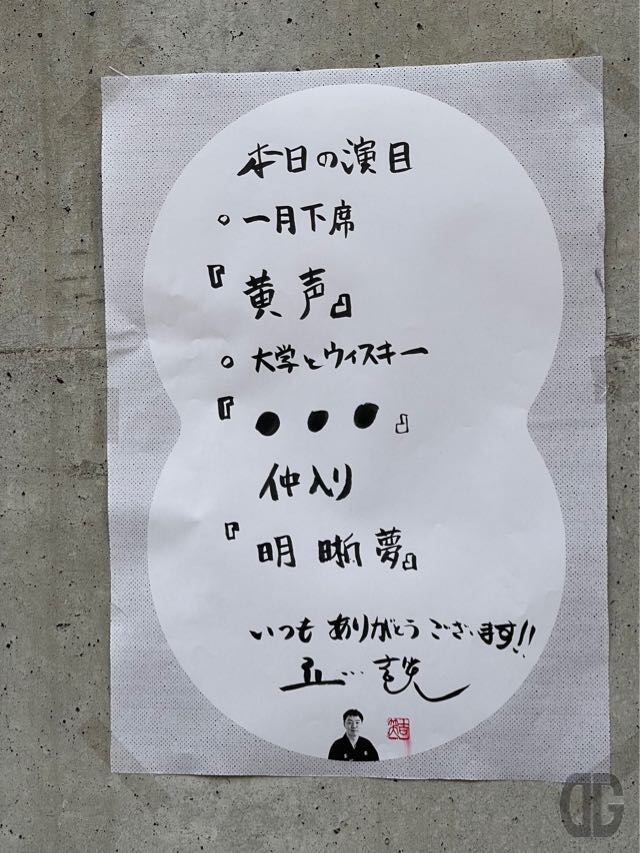 本日の演目
○ 一月下席
『黄声』
○ 大学とウィスキー
『●●●』
仲入り
『明晰夢』
いつも ありがとう ございます!!